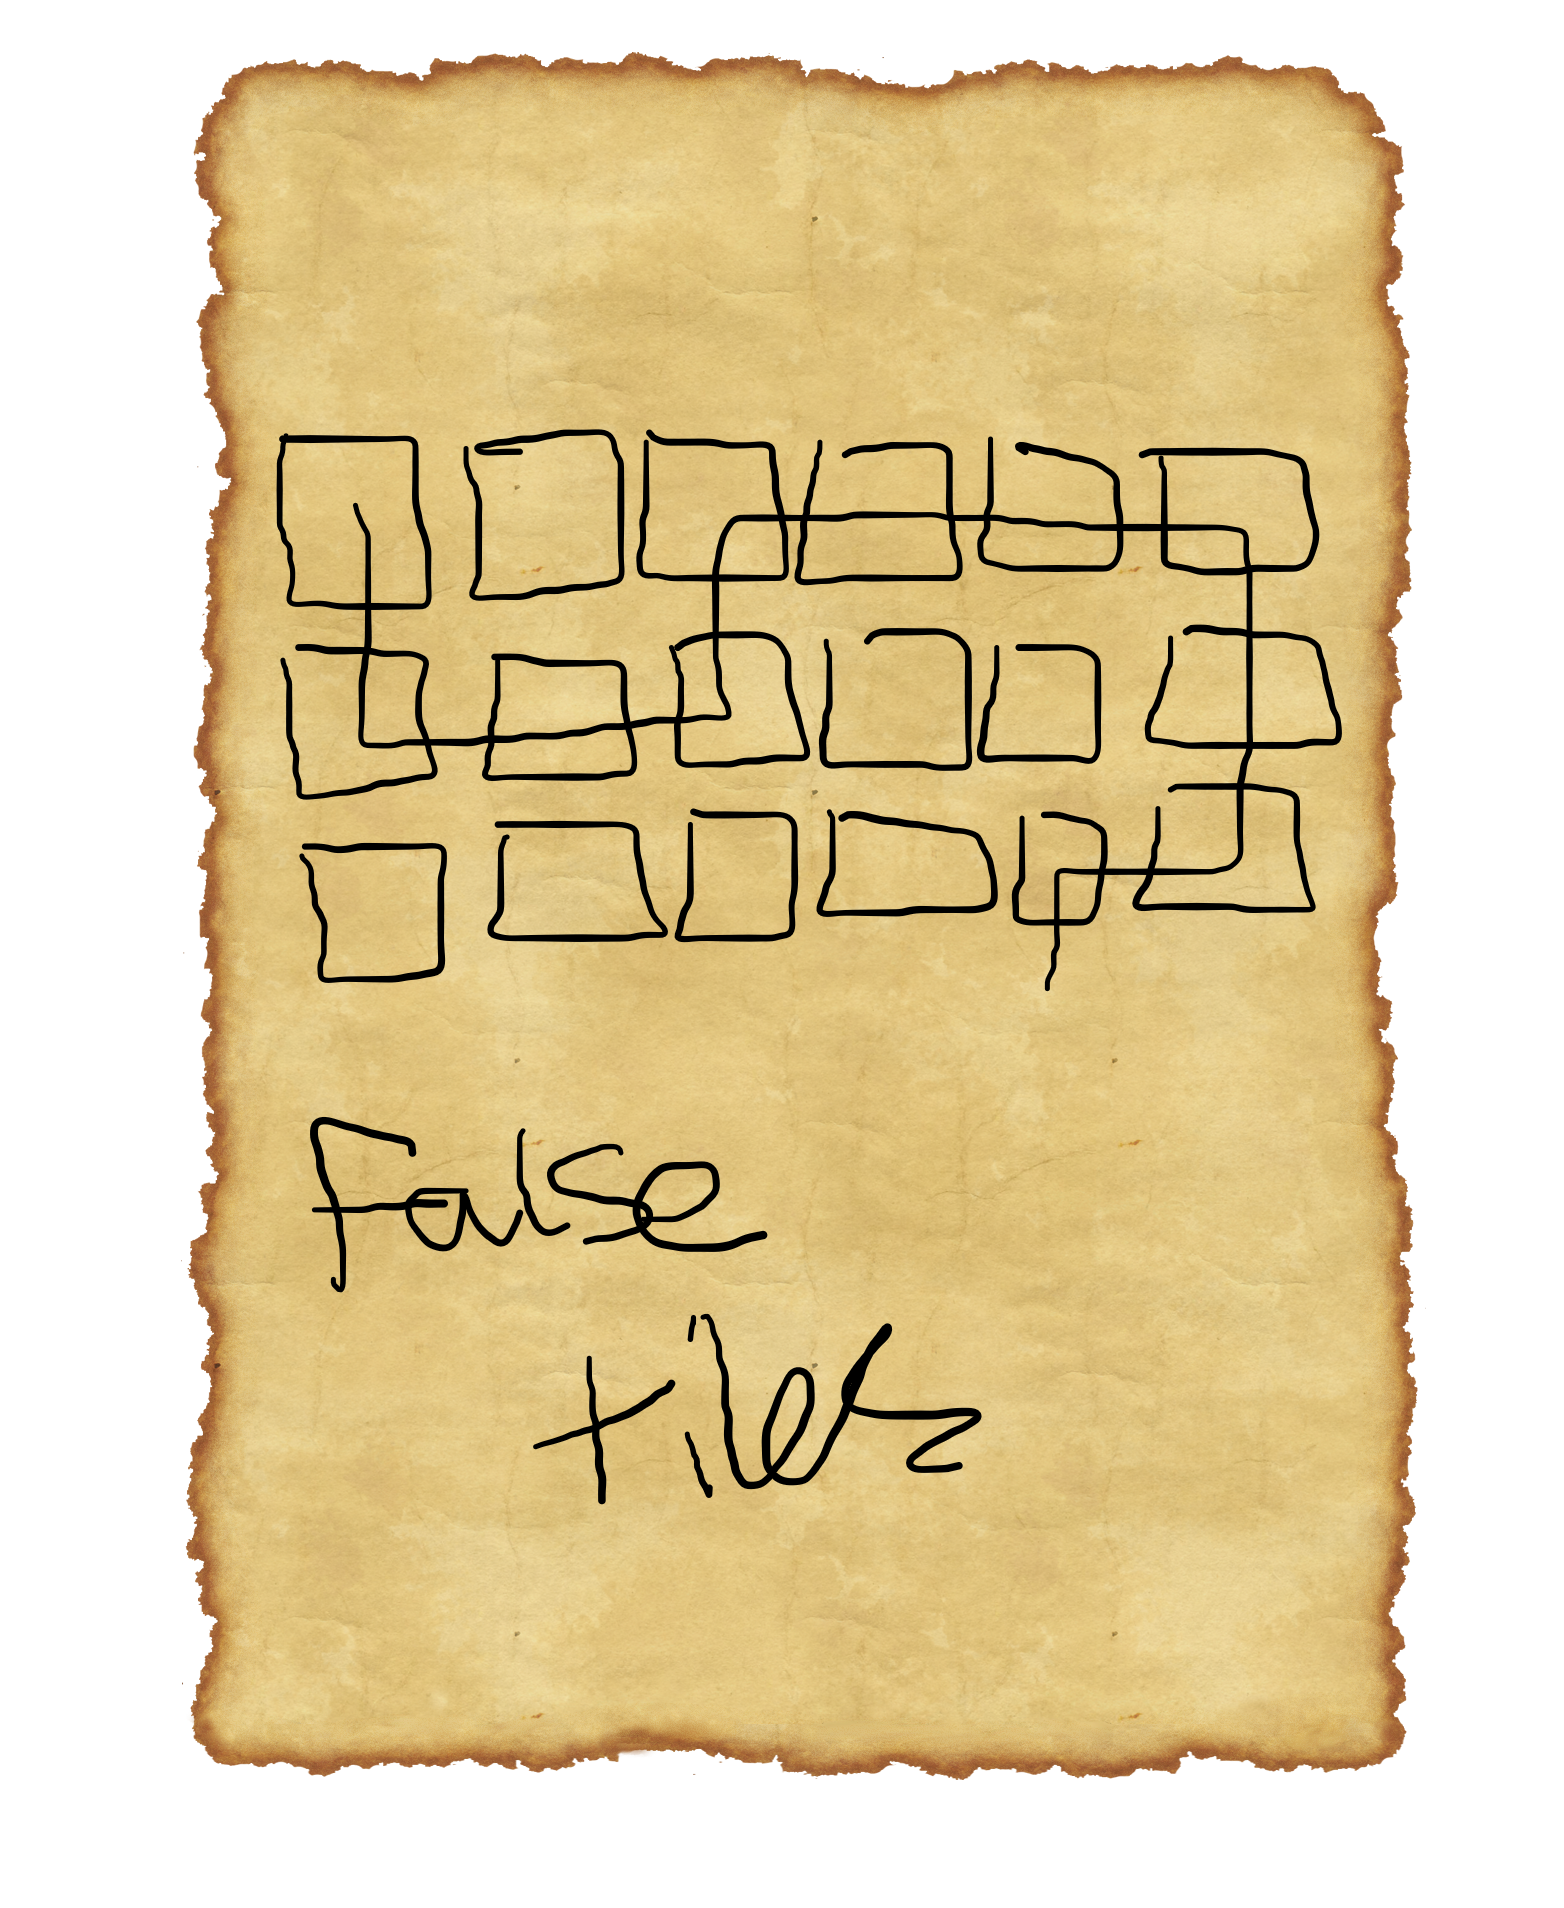 False
tiles